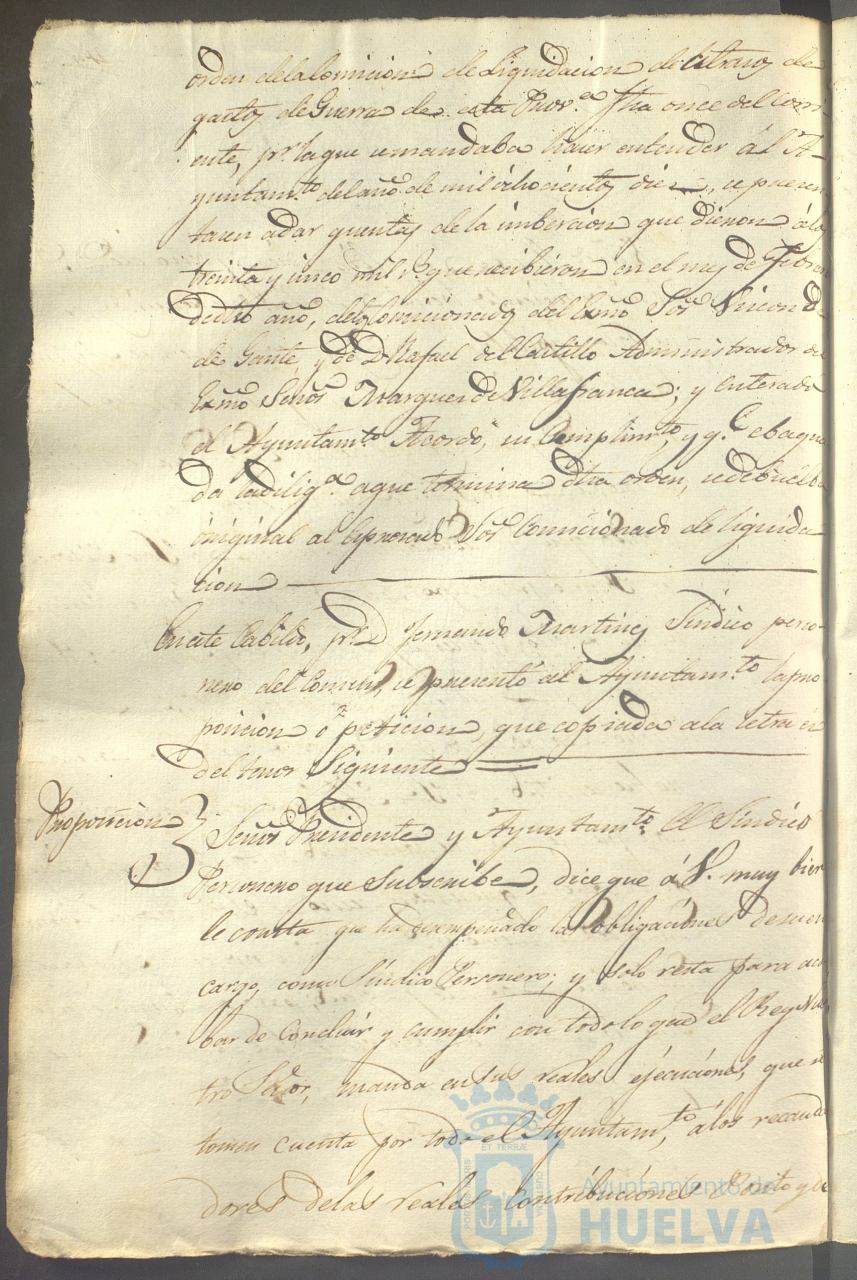 orden de la Comicion de Liquidacion de atrasos de
gastos de Guerra de esta Prov.ª fha once del corri-
ente, pr. la que se mandaba hacer entender ál A-
yuntam.to del año de mil ocho cientos diez, se presen
tasen adar quentas de la imbercion que dieron á lo
treinta y cinco mil rs. que recibieron en el mes de Febrer
dedho año, delos Comicionados del Exmo Sor. Vizcond
de Gante, y de Dn Rafael del Castillo Administrador de
Exmo Señor Marques de Villafranca; y enterado
el Ayuntam.to Acordó, su Cumplim.to, y q.e ebaqua
da la dilig.ª aque termina dha orden, se debuelba
original al expresado Sor. Comicionado de liquida
cion
En este Cabildo, pr. Dn Fernando Martinez Sindico perso-
nero del Comun, se presentó al Ayuntam.to la pro
posicion ó peticion, que copiada ala letra es
del tenor Siguiente
Proposicion
Señor Presidente y Ayuntam.to El Sindico
Personero que Subscribe, dice que á V. muy bien
le consta que ha desempeñado las obligaciones de su
cargo, como Sindico Personero; y solo resta para aca
bar de Concluir y cumplir con todo lo que el Rey Nues
tro Sor, manda en sus reales ejecuciones, que se
tomen cuenta por todo el Ayuntam.to, á los recauda
dores de las reales Contribuciones Posito y de
Ayuntamiento de
HUELVA